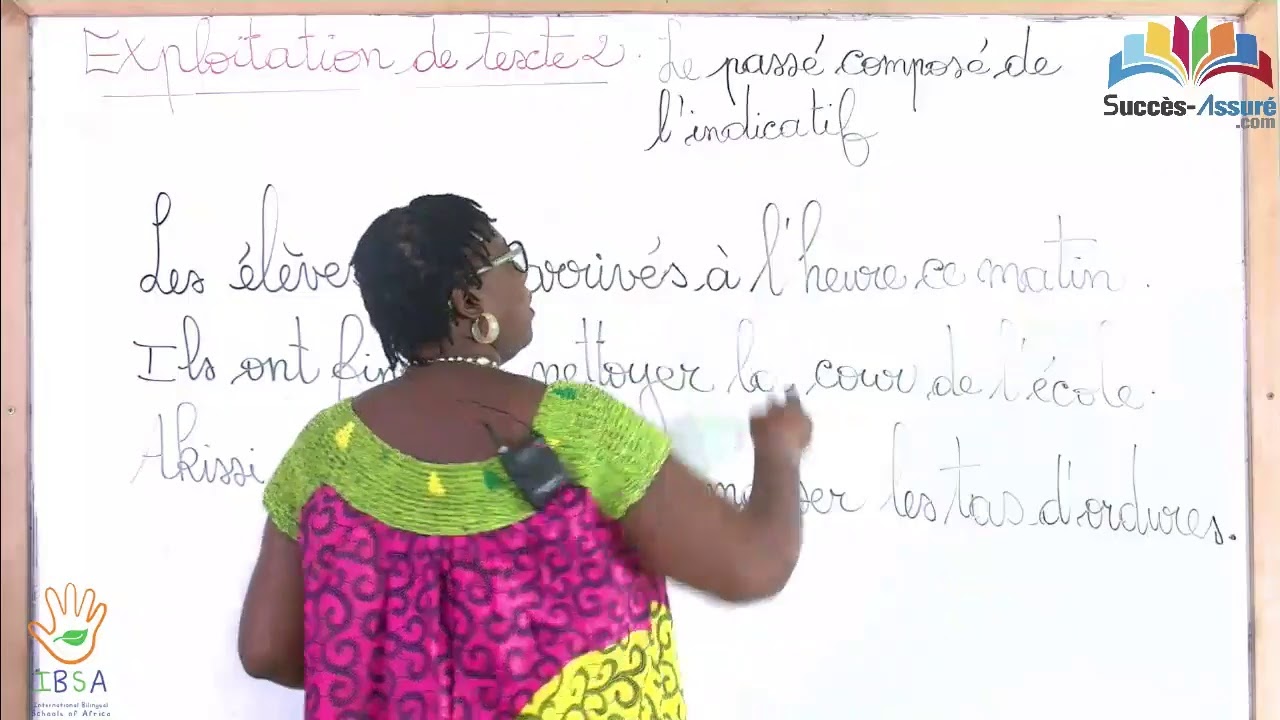 Exploitation de texte 2. Le passé composé de
l'indicatif
Les élève arrivés à l'heure ce matin.
Ils ont fin nettoyer la cour de l'école.
Akissi les tas d'ordures.
Succès-Assuré
.com
IBSA
International Bilingual
Schools of Africa